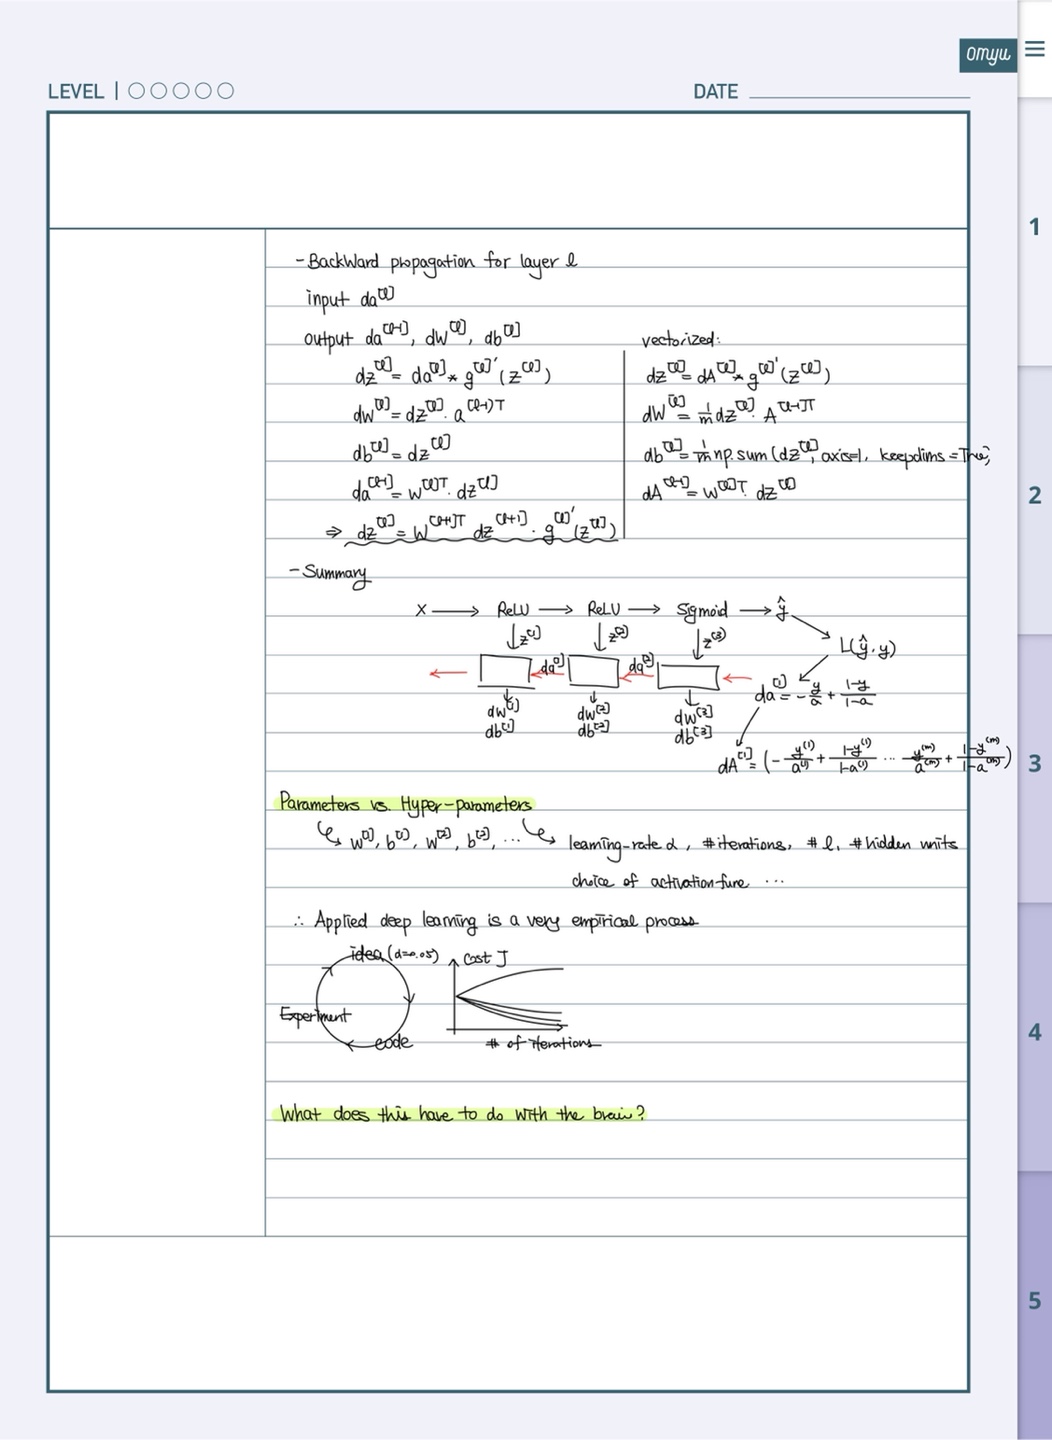 omyu
LEVEL | ○○○○○
DATE
1
2
3
4
5
- Backward propagation for layer l
input da^[l]
output da^[l-1], dw^[l], db^[l]
dz^[l] = da^[l] * g^[l]'(z^[l])
dw^[l] = dz^[l] · a^[l-1]T
db^[l] = dz^[l]
da^[l-1] = w^[l]T · dz^[l]
⇒ dz^[l] = W^[l+1]T dz^[l+1] · g^[l]'(z^[l])
vectorized:
dz^[l] = dA^[l] * g^[l]'(z^[l])
dW^[l] = 1/m dz^[l] · A^[l-1]T
db^[l] = 1/m np.sum(dz^[l], axis=1, keepdims=True)
dA^[l-1] = w^[l]T · dz^[l]
- Summary
X → ReLU → ReLU → Sigmoid → ŷ
↓z^[1] ↓z^[2] ↓z^[3] L(ŷ, y)
da^[1] da^[2] da^[l] = -y/a + 1-y/1-a
dw^[1] dw^[2] dw^[3]
db^[1] db^[2] db^[3]
dA^[l] = (-y^(1)/a^(1) + 1-y^(1)/1-a^(1) ... -y^(m)/a^(m) + 1-y^(m)/1-a^(m))
Parameters vs. Hyper-parameters
w^[1], b^[1], w^[2], b^[2], ...
learning-rate α, #iterations, # l, #hidden units
choice of activation ...
∴ Applied deep learning is a very empirical process
idea (α=0.05)
Experiment
code
cost J
# of iterations
What does this have to do with the brain?